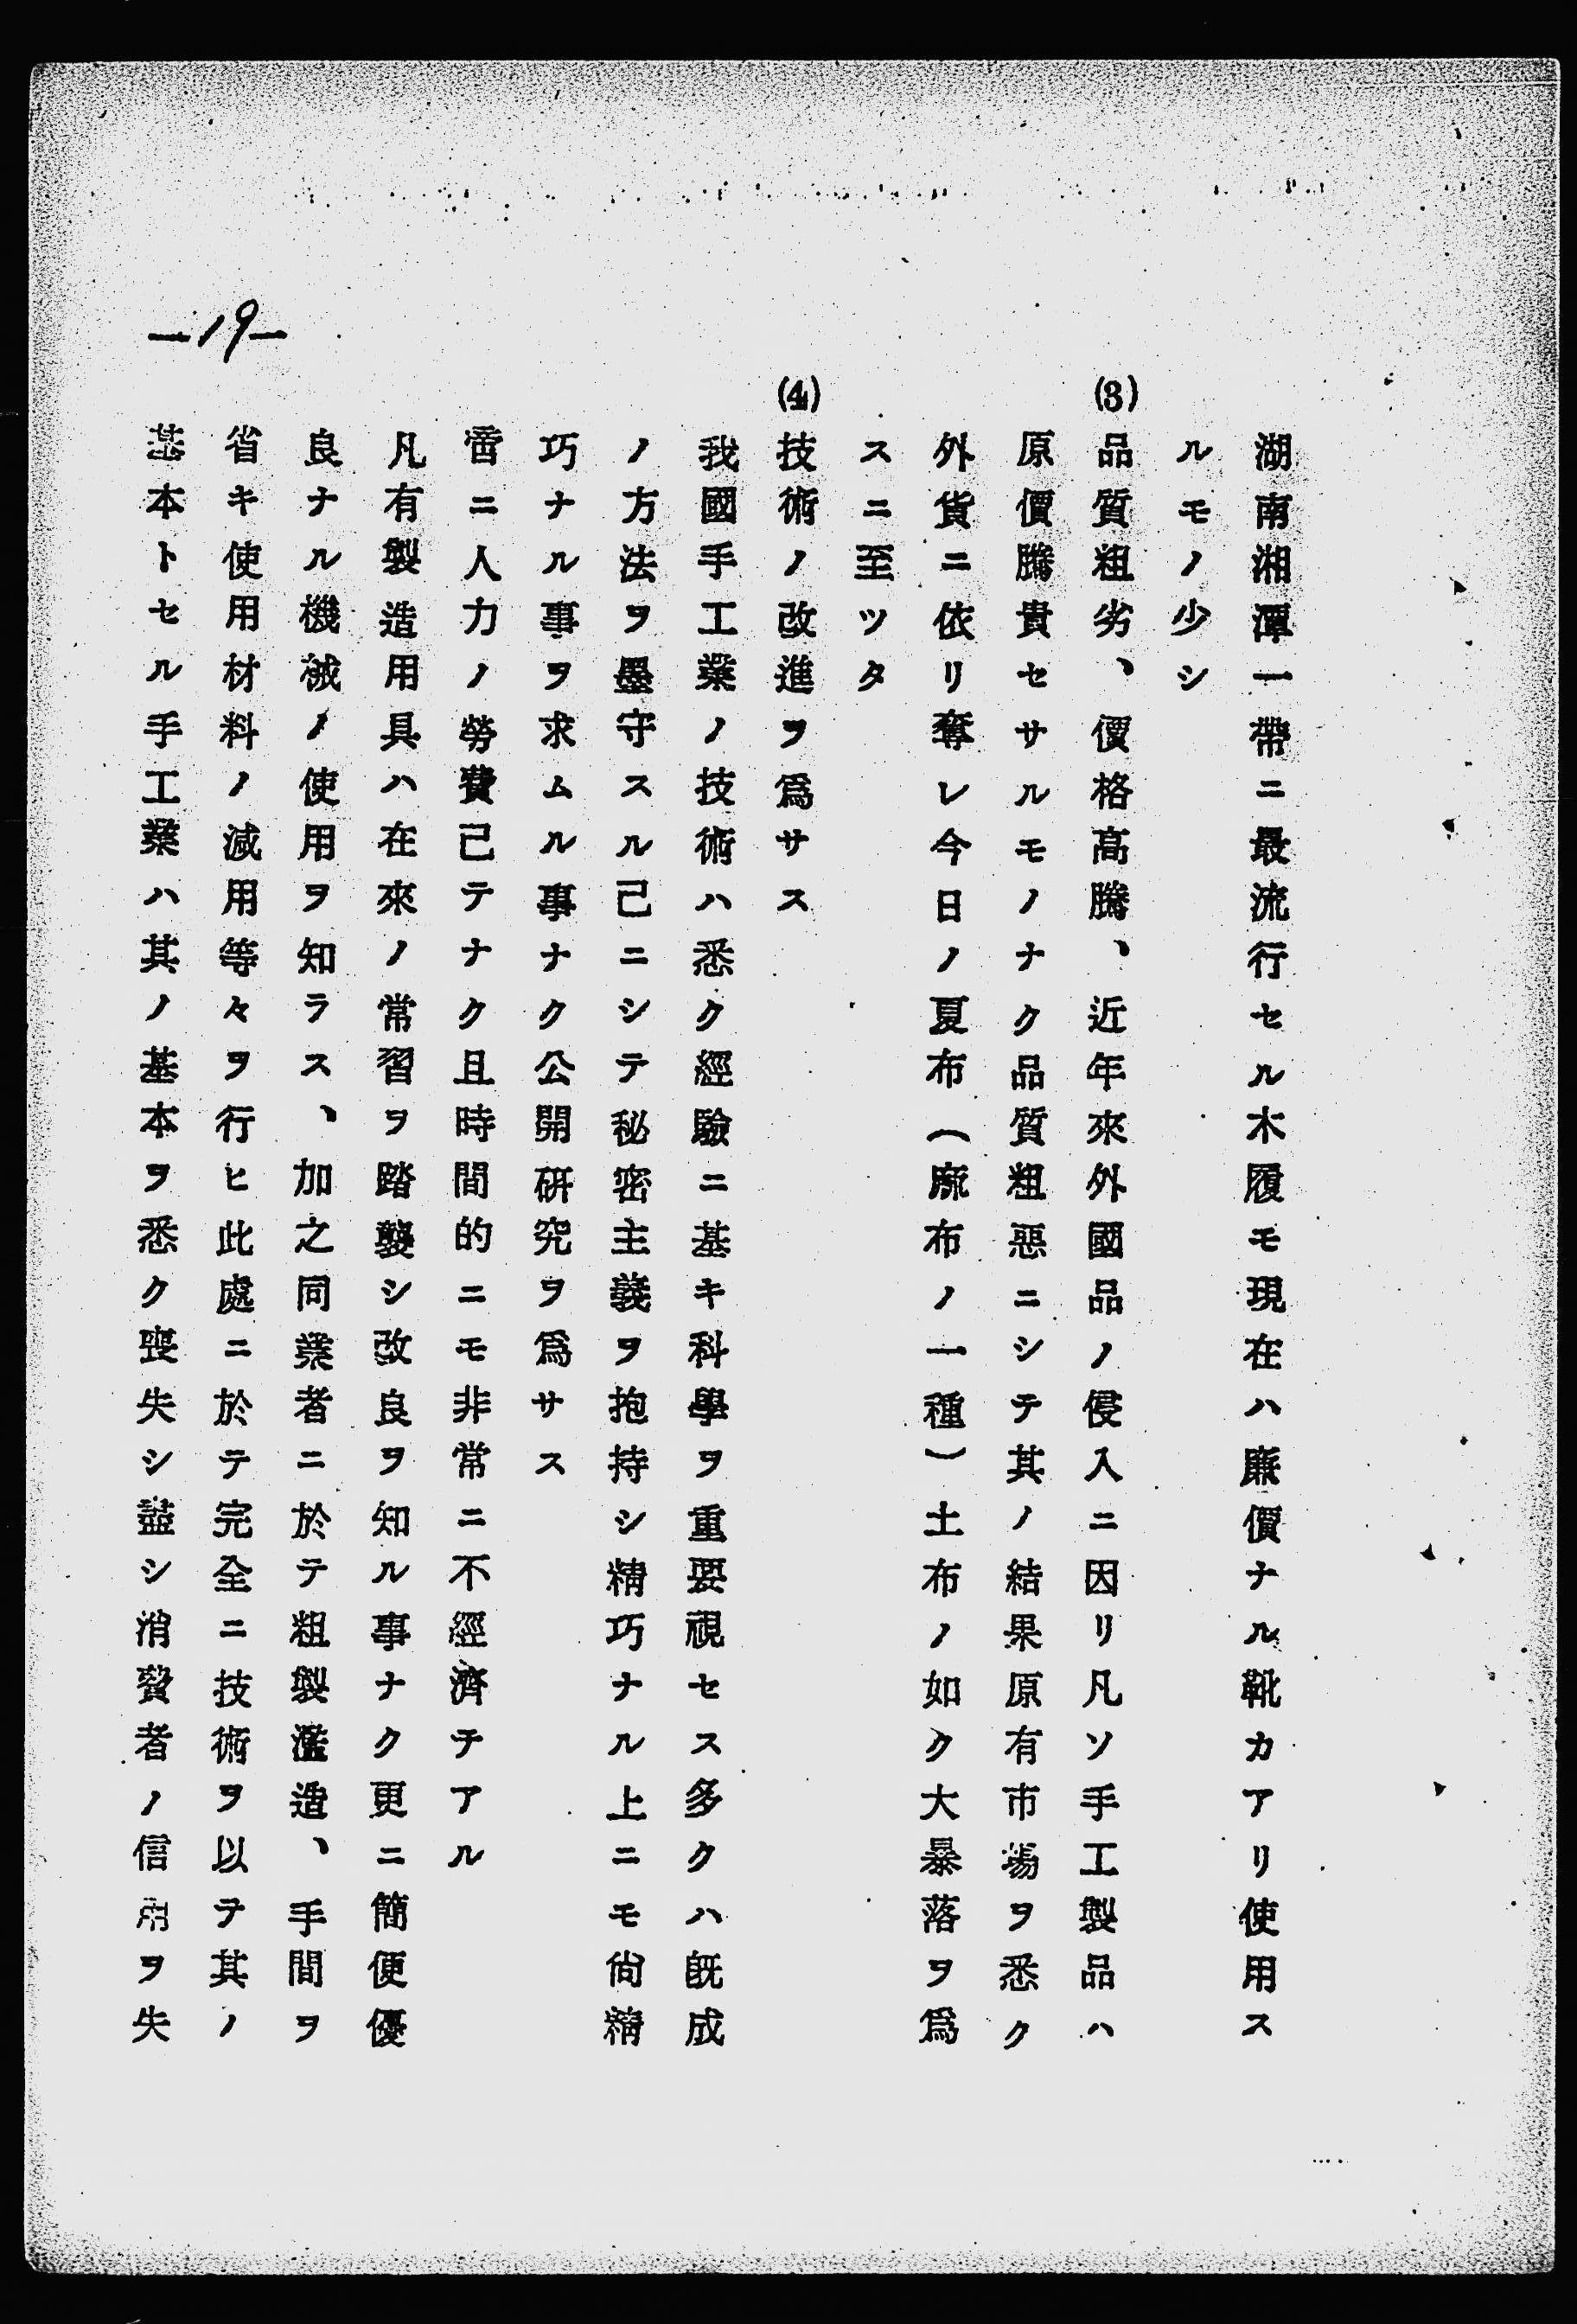 湖南湘潭一帶ニ最流行セル木履モ現在ハ廉價ナル靴カアリ使用ス
ルモノ少シ
(3) 品質粗劣、價格高騰、近年來外國品ノ侵入ニ因リ凡ソ手工製品ハ
原價騰貴セサルモノナク品質粗惡ニシテ其ノ結果原有市場ヲ悉ク
外貨ニ依リ奪レ今日ノ夏布(麻布ノ一種)土布ノ如ク大暴落ヲ爲
スニ至ツタ
(4) 技術ノ改進ヲ爲サス
我國手工業ノ技術ハ悉ク經驗ニ基キ科學ヲ重要視セス多クハ既成
ノ方法ヲ墨守スル己ニシテ秘密主義ヲ抱持シ精巧ナル上ニモ尙精
巧ナル事ヲ求ムル事ナク公開硏究ヲ爲サス
啻ニ人力ノ勞費己テナク且時間的ニモ非常ニ不經濟テアル
凡有製造用具ハ在來ノ常習ヲ踏襲シ改良ヲ知ル事ナク更ニ簡便優
良ナル機械ノ使用ヲ知ラス、加之同業者ニ於テ粗製濫造、手間ヲ
省キ使用材料ノ減用等々ヲ行ヒ此處ニ於テ完全ニ技術ヲ以テ其ノ
基本トセル手工業ハ其ノ基本ヲ悉ク喪失シ盡シ消費者ノ信用ヲ失
—19—